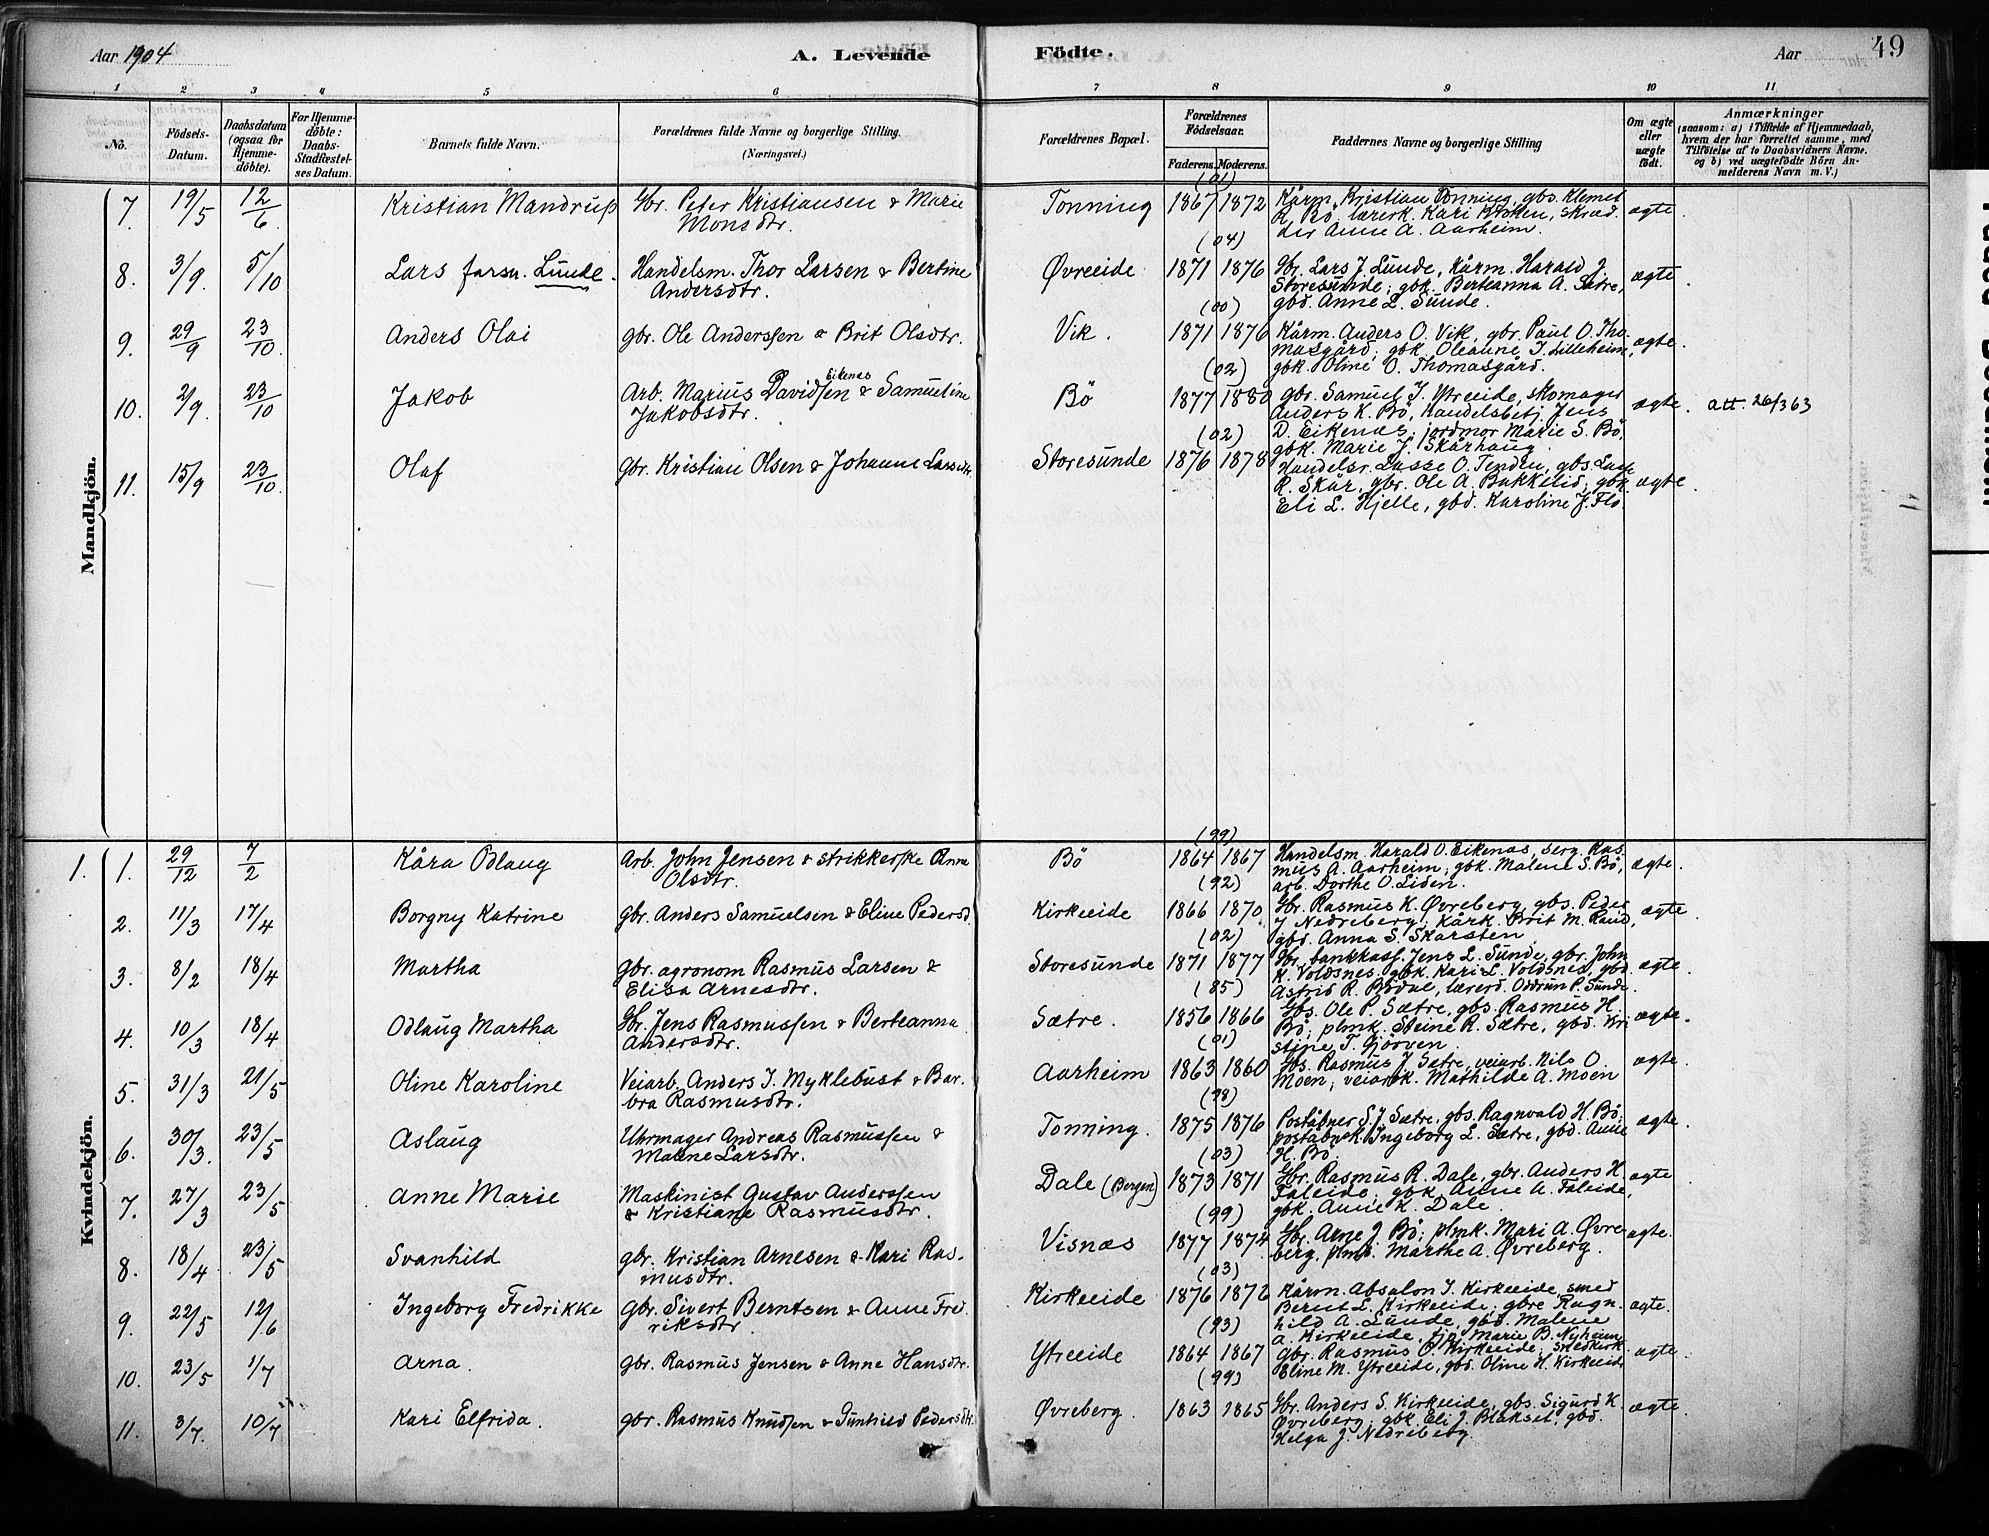 Aar 1904
A. Levende
Födte.
Aar
49
1 2 3 4 5 6 7 8 9 10 11
No.
Födsels-
Datum.
Daabsdatum
(ogsaa for
Hjemme-
döbte).
For Hjemme-
döbte:
Daabs-
Stadfæstel-
ses Datum.
Barnets fulde Navn.
Forældrenes fulde Navne og borgerlige Stilling.
(Næringsvei.)
Forældrenes Bopæl.
Forældrenes
Födselsaar.
Faderens. Moderens.
Faddernes Navne og borgerlige Stilling
Om ægte
eller
uægte
födt.
Anmærkninger
(saasom: a) i Tilfælde af Hjemmedaab,
hvem der har forrettet samme, med
Tilföielse af to Daabsvidners Navne.
og b) ved uægtefödte Börn An-
melderens Navn m. V.)
Mandkjön.
7. 19/5 12/6 Kristian Mandrup Gbr. Peter Kristiansen & Marie
Monsdtr.
Tonning (01) 1867 1872 Kårm. Kristian Tonning, gbs. Klemet
R. Bö, lærerk. Kari, skræd.
der Anne A. Aarheim.
ægte.
8. 3/9. 5/10 Lars forsn. Lunde. Handelsm. Thor Larsen & Bertine
Andersdtr.
Øvreeide (04) 1871 1876 Gbr. Lars J. Lunde, Kårm. Harald J.
Storesunde; gbk. Berteanna A. Sætre,
gbd. Anne L. Sunde.
ægte.
9. 29/9 23/10. Anders Olai gbr. Ole Anderssen & Brit Olsdtr.
Vik. (00) 1871 1876 Kårm. Anders O. Vik, gbr. Paul O. Tho
masgård; gbk. Oleanne J. Lilleheim,
gbk. Oline O. Thomasgård.
ægte.
10. 2/9. 23/10 Jakob Arb. Marius Davidsen Eikenæs & Samueline
Jakobsdtr.
Bö (02) 1877 1880 gbr. Samuel J. Ytreeide, Skomager
Anders K. Bö, Handelsbetj. Jens
D. Eikenæs, jordmor Marie S. Bö,
gbk. Marie J. Skårhaug.
ægte. att. 26/3 63
11. 15/9 23/10. Olaf gbr. Kristian Olsen & Johanne Larsdtr.
Storesunde (02) 1876 1878 Handelsr. Lasse O. Tenden, gbs. Lasse
R. Skår, gbr. Ole A. Bakkelid; gbk.
Eli L. Hjelle, gbd. Karoline J. Flo.
ægte.
Kvindekjön.
1. 1. 29/12 7/2 Kåra Odlaug Arb. John Jensen & strikkerske Anna
Olsdtr.
Bö (99) 1864 1867 Handelsm. Harald O. Eikenæs, serg. Ras
mus A. Aarheim; gbk. Malene S. Bö,
arb. Dorthe O. Liden.
ægte.
2. 11/3 17/4 Borgny Katrine gbr. Anders Samuelsen & Eline Pedersd.
Kirkeeide (92) 1866 1870 Gbr. Rasmus K. Øvreberg, gbs. Peder
J Nedreberg; Kårk. Brit M. Rand,
gbd. Anna S. Skarsten
ægte.
3. 8/2 18/4 Martha gbr. agronom Rasmus Larsen &
Elisa Arnesdtr.
Storesunde (02) 1871 1877 Gbr. bankkass. Jens L. Sunde, gbr. John
K. Voldsnes. gbk. Kari L. Voldsnes, gbd.
Astrid R. Bödal, lærerd. Oddrun P. Sunde.
ægte.
4. 10/3 18/4 Odlaug Martha Gbr. Jens Rasmussen & Berteanna
Andersdtr.
Sætre. (85) 1856 1866 Gbs. Ole P. Sætre, gbs. Rasmus H.
Bö; plmk. Steine R. Sætre, gbd. Kri
stine T. Gjörven
ægte.
5. 31/3 21/5 Oline Karoline Veiarb. Anders J. Myklebust & Bar-
bra Rasmusdtr.
Aarheim (01) 1863 1860 Gbs. Rasmus J Sætre, veiarb. Nils O.
Moen; veiarbk. Mathilde A. Moen
ægte
6. 30/3. 23/5 Aslaug Uhrmager Andreas Rasmussen &
Malene Larsdtr.
Tonning. (98) 1875 1876 Poståbner S. J Sætre, gbs. Ragnvald H. Bö;
poståbn.k. Ingeborg L. Sætre, gbd. Anne
H. Bö.
ægte.
7. 27/3 23/5 Anne Marie Maskinist Gustav Anderssen
& Kristiane Rasmusdtr.
Dale (Bergen) (03) 1873 1871 Gbr. Rasmus R. Dale, gbr. Anders H
Faleide; gbk. Anne A. Faleide,
gbk. Anne K. Dale.
ægte
8. 18/4 23/5 Svanhild gbr. Kristian Arnesen & Kari Ras-
musdtr.
Visnæs (99) 1877 1874 Gbr. Arne J. Bö; plmk. Mari A. Øvre
berg, plmk. Marthe A. Øvreberg.
ægte.
9. 22/5 12/6 Ingeborg Fredrikke gbr. Sivert Berntsen & Anne Fred
riksdtr.
Kirkeeide (03) 1876 1872 Kårm. Absalon J. Kirkeeide, smed
Bernt L. Kirkeeide; gbre Ragn.
hild A. Lunde, gbd. Malene
A. Kirkeeide, tje. Marie B. Nyheim
ægte.
10. 23/5 1/7 Arna. gbr. Rasmus Jensen & Anne Hansdtr.
Ytreeide (93) 1864 1867 gbr. Rasmus O. Kirkeeide; smedkirk.
Eline M. Ytreeide, gbd. Oline H. Kirkeeide
ægte.
11. 3/7. 10/7 Kari Elfrida. gbr. Rasmus Knudsen & Gunhild Pedersdtr.
Øvreberg. (99) 1863 1865 Gbr. Anders S. Kirkeeide, gbs. Sigurd K
Øvreberg; gbk. Eli J. Blakset. gbd.
Helga J. Nedreberg.
ægte.